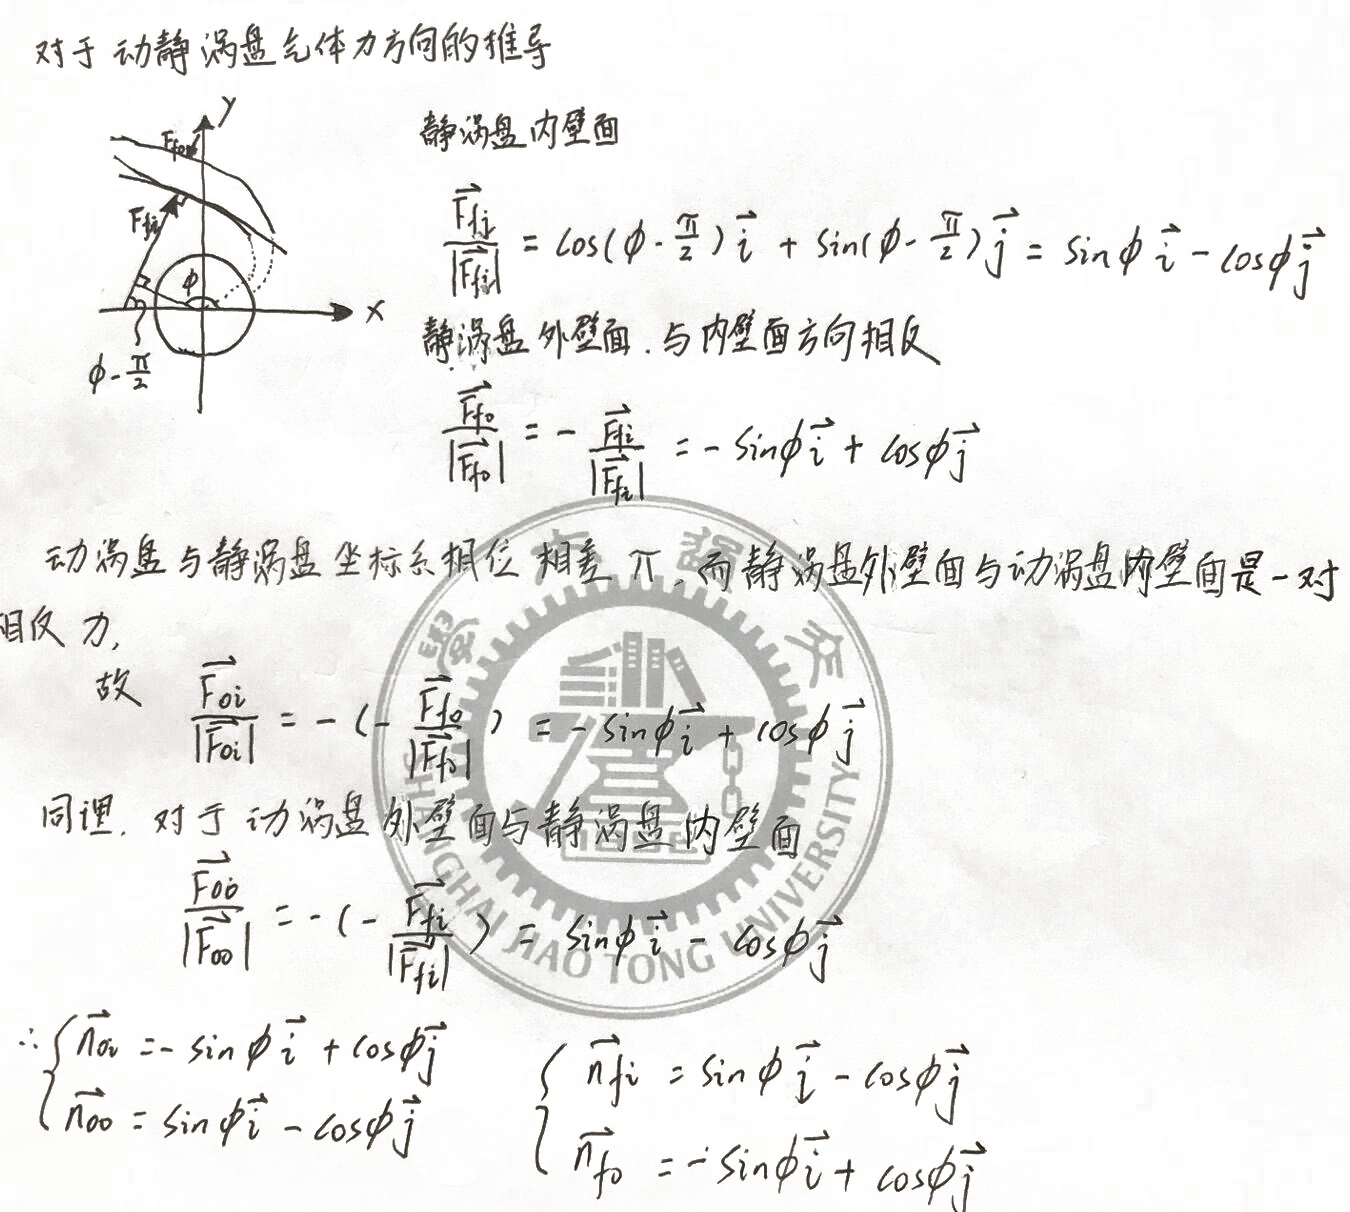 对于动静涡盘气体力方向的推导
y
F_{fo}
F_{fi}
φ
x
φ - π/2
静涡盘内壁面
\frac{\vec{F_{fi}}}{|\vec{F_{fi}}|} = cos(φ - \frac{π}{2})\vec{i} + sin(φ - \frac{π}{2})\vec{j} = sinφ\vec{i} - cosφ\vec{j}
静涡盘外壁面.与内壁面方向相反
\frac{\vec{F_{fo}}}{|\vec{F_{fo}}|} = - \frac{\vec{F_{fi}}}{|\vec{F_{fi}}|} = - sinφ\vec{i} + cosφ\vec{j}
动涡盘与静涡盘坐标系相位相差π,而静涡盘外壁面与动涡盘内壁面是一对
相反力,
故 \frac{\vec{F_{oi}}}{|\vec{F_{oi}}|} = - (- \frac{\vec{F_{fo}}}{|\vec{F_{fo}}|}) = - sinφ\vec{i} + cosφ\vec{j}
同理.对于动涡盘外壁面与静涡盘内壁面
\frac{\vec{F_{oo}}}{|\vec{F_{oo}}|} = - (- \frac{\vec{F_{fi}}}{|\vec{F_{fi}}|}) = sinφ\vec{i} - cosφ\vec{j}
∴ { \vec{n_{oi}} = - sinφ\vec{i} + cosφ\vec{j}
\vec{n_{oo}} = sinφ\vec{i} - cosφ\vec{j}
{ \vec{n_{fi}} = sinφ\vec{i} - cosφ\vec{j}
\vec{n_{fo}} = - sinφ\vec{i} + cosφ\vec{j}
SHANGHAI JIAO TONG UNIVERSITY